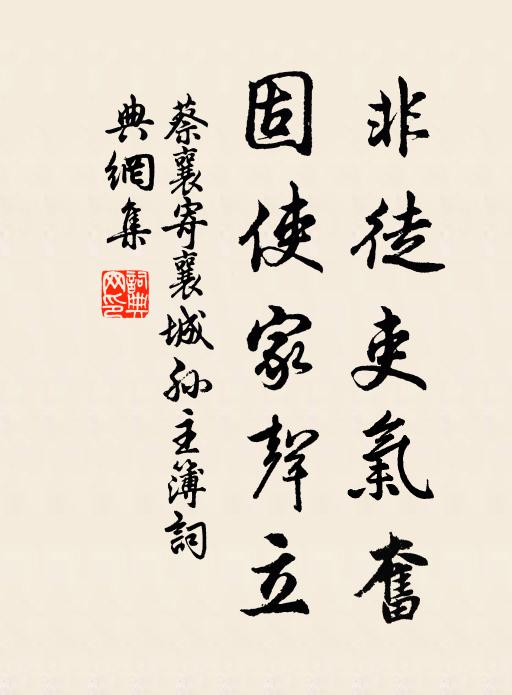 非徒吏氣奮
固使家聲立
蔡襄寄襄城孙主簿詞
典網集
詞典網印